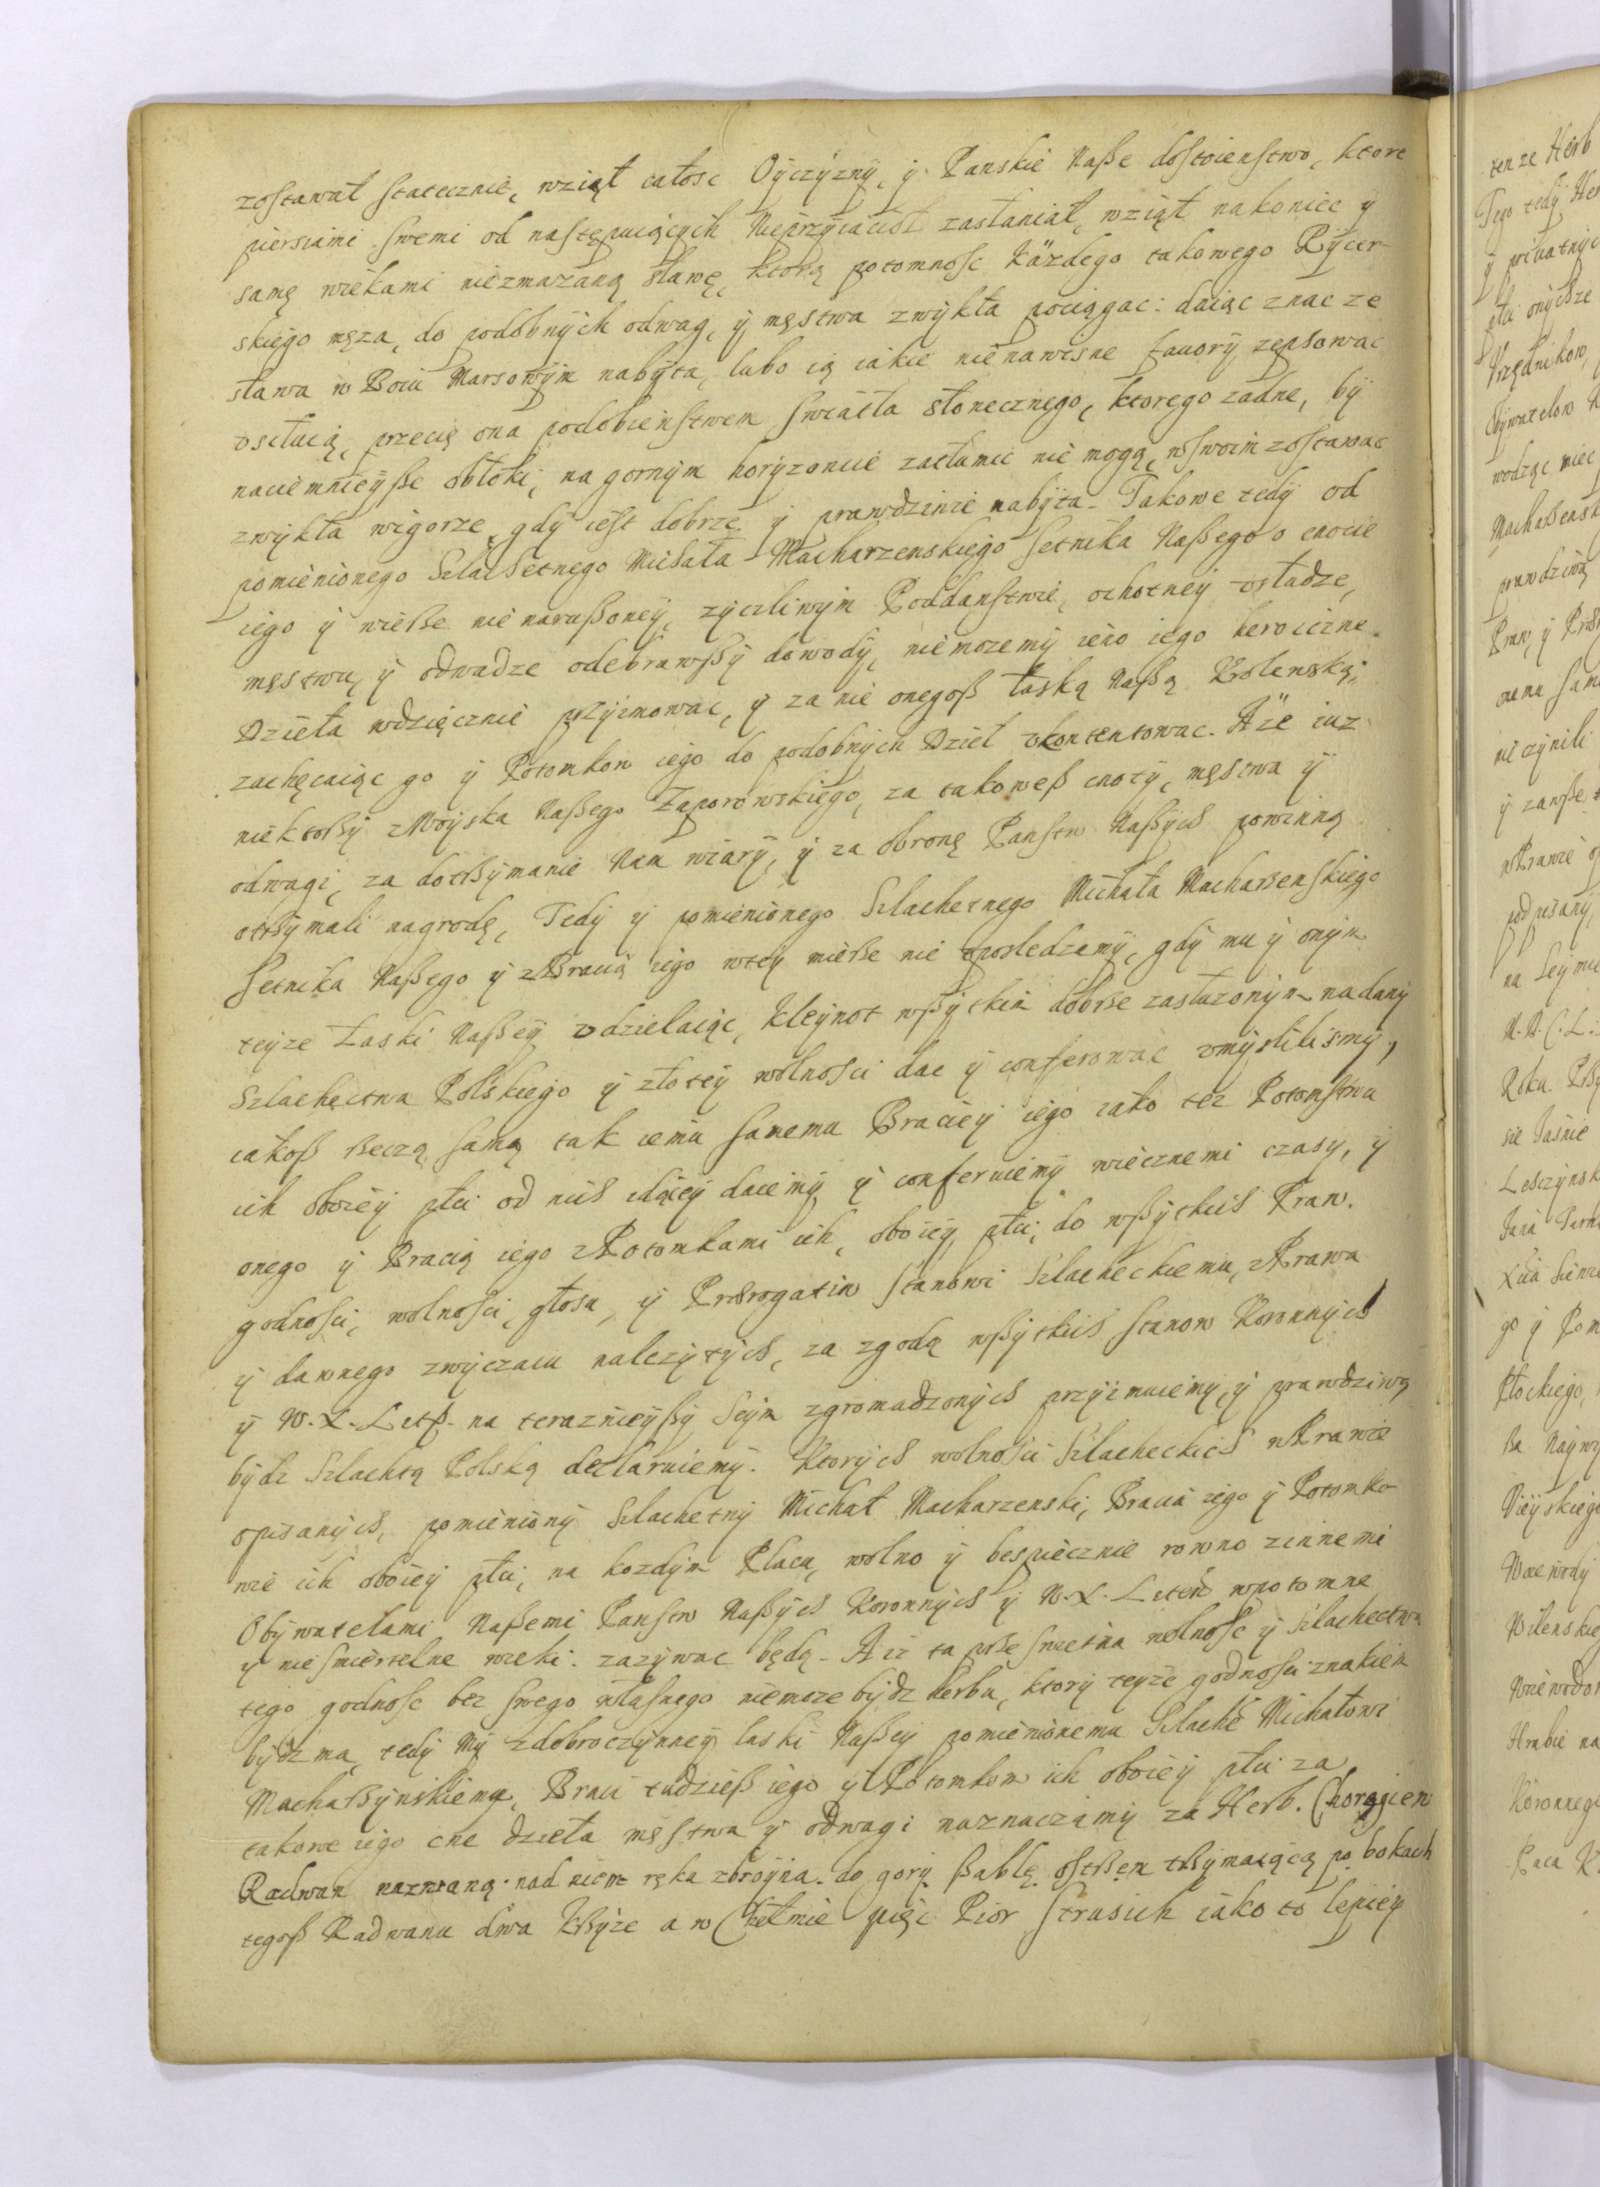 zostawał statecznie, wziął całosc Oyczyzny, y Panskie Naße dostoienstwo, ktore
piersiami swemi od następuiących Nieprzyiacioł zasłaniał, wziął nakoniec y
samę wiekami niezmazaną sławę, ktorą potomnosc każdego takowego Rycer-
skiego męza, do podobnych odwag, y męstwa zwykła pociągac: daiąc znac ze
sława w Boiu Marsowym nabyta, lubo ią iakie nienawisne favory zepsowac
vsiłuią, przecię ona podobienstwem swiatła słonecznego, ktorego zadne, by
naciemnieyße obłoki, na gornym horyzoncie zacłumic nie mogą, wswoim zostawac
zwykła wigorze, gdy iest dobrze y prawdziwie nabyta. Takowe tedy od
pomienionego Szlachetnego Michała Macharzenskiego Setnika Naßego o cnocie
iego y wierße nienarußoney, zyczliwym Poddanstwie, ochotney vsładze,
męstwu y odwadze odebrawßy dowody, niemozemy ieno iego heroiczne
Dzieła wdzięcznie przyimowac, y za nie onegoß łaską Naßą Krolewską,
zachęcaiąc go y Potomkow iego do podobnych Dzieł vkontentowac. A że iuz
niektorßy zWoyska Naßego Zaporowskiego, za takoweß cnoty, męstwa y
odwagi, za dotrßymanie Nam wiary, y za obronę Panstw Naßych powinną
otrßymali nagrodę, Tedy y pomienionego Szlachetnego Michała Macharßenskiego
Setnika Naßego y zBracią iego wtey mierße nie vposledzamy, gdy mu y onym
teyze Łaski Naßey vdzielaiąc, kleynot wßytkim dobrße zasłuzonym nadany
Szlachectwa Polskiego y złotey wolnosci dac y conferowac vmyslilismy,
iakoß rßeczą samą tak iemu samemu Braciey iego iako tez Potomstwu
ich oboiey płci od nich idącey daiemy y conferuiemy wiecznemi czasy, y
onego y Bracią iego zPotomkami ich, oboiey płci, do wßytkich Praw.
godnosci, wolnosci, głosu, y Prærogatiw stanowi Szlacheckiemu, zPrawa
y dawnego zwyczaiu nalezytych, za zgodą wßytkich stanow Koronnych
y W. X. Litß. na teraznieyßy Seym zgromadzonych przyimuiemy, y prawdziwą
bydz Szlachtą Polską declaruiemy. Ktorych wolnosci Szlacheckich wPrawie
opisanych, pomieniony Szlachetny Michał Macharzenski, Bracia iego y Potomko-
wie ich oboiey płci, na kozdym Placu, wolno y bespiecznie rowno zinnemi
Obywatelami Naßemi Panstw Naßych Koronnych y W. X. Litew wpotomne
y niesmiertelne wieki. zazywac będą. A iz ta przeswietna wolnosc y Szlachectwa
tego godnosc bez swego własnego niemoze bydz herbu, ktory teyże godnosci znakiem
bydz ma, tedy My zdobroczynney łaski Naßey pomienionemu Szlache Michałowi
Macharßynskiemu, Braci tudzieß iego y Potomkom ich oboiey płci za
takowe iego cne dzieła męstwa y odwagi naznaczamy za Herb. Chorągiew
Radwan nazwaną. nad niem ręka zbroyna. do gory ßablę ostrßem trßymaiącą po bokach
tegoß Radwanu dwa krßyze a w Chełmie pięc Pior Strusich iako to lepiey